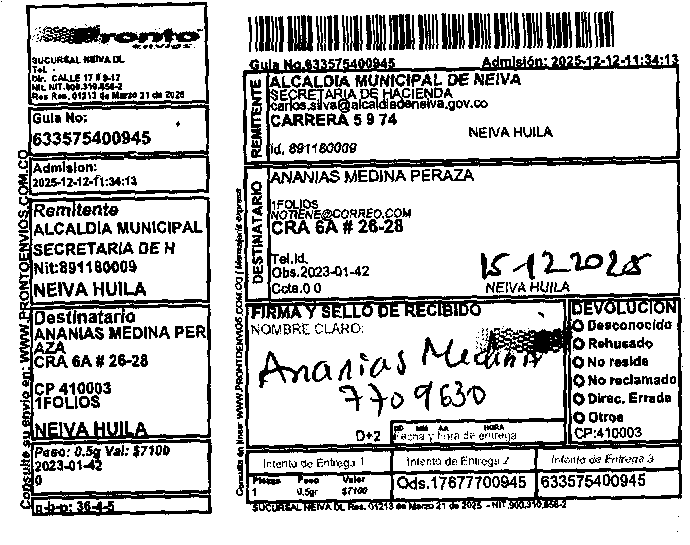 Pronto
envios
SUCURSAL NEIVA DL
Tel. -
Dir. CALLE 17 # 9-17
Nit. NIT.900.310.856-2
Res Res. 01213 de Marzo 21 de 2025
Guia No:
633575400945
Admision:
2025-12-12-11:34:13
Remitente
ALCALDIA MUNICIPAL
SECRETARIA DE H
Nit:891180009
NEIVA HUILA
Destinatario
ANANIAS MEDINA PER
AZA
CRA 6A # 26-28
CP 410003
1FOLIOS
NEIVA HUILA
Peso: 0.5g Val: $7100
2023-01-42
0
q-b-p: 36-4-5
Consulte su envio en: WWW.PRONTOENVIOS.COM.CO
Guia No.633575400945
Admisión: 2025-12-12-11:34:13
REMITENTE
ALCALDIA MUNICIPAL DE NEIVA
SECRETARIA DE HACIENDA
carlos.silva@alcaldiadeneiva.gov.co
CARRERA 5 9 74
NEIVA HUILA
Id. 891180009
DESTINATARIO
ANANIAS MEDINA PERAZA
1FOLIOS
NOTIENE@CORREO.COM
CRA 6A # 26-28
Tel.Id.
Obs.2023-01-42
Ccta.0 0
15-12-2025
NEIVA HUILA
FIRMA Y SELLO DE RECIBIDO
NOMBRE CLARO:
Ananias Medina
7709630
D+2
DD MM AA HORA
Fecha y hora de entrega
DEVOLUCION
Desconocido
Rehusado
No reside
No reclamado
Direc. Errada
Otros
CP:410003
Intento de Entrega 1
Intento de Entrega 2
Intento de Entrega 3
Piezas Peso Valor
1 0.5gr $7100
Ods.17677700945
633575400945
SUCURSAL NEIVA DL Res. 01213 de Marzo 21 de 2025 - NIT.900.310.856-2